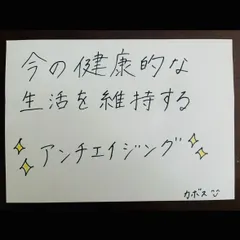 今の健康的な
生活を維持する
アンチエイジング
カボス